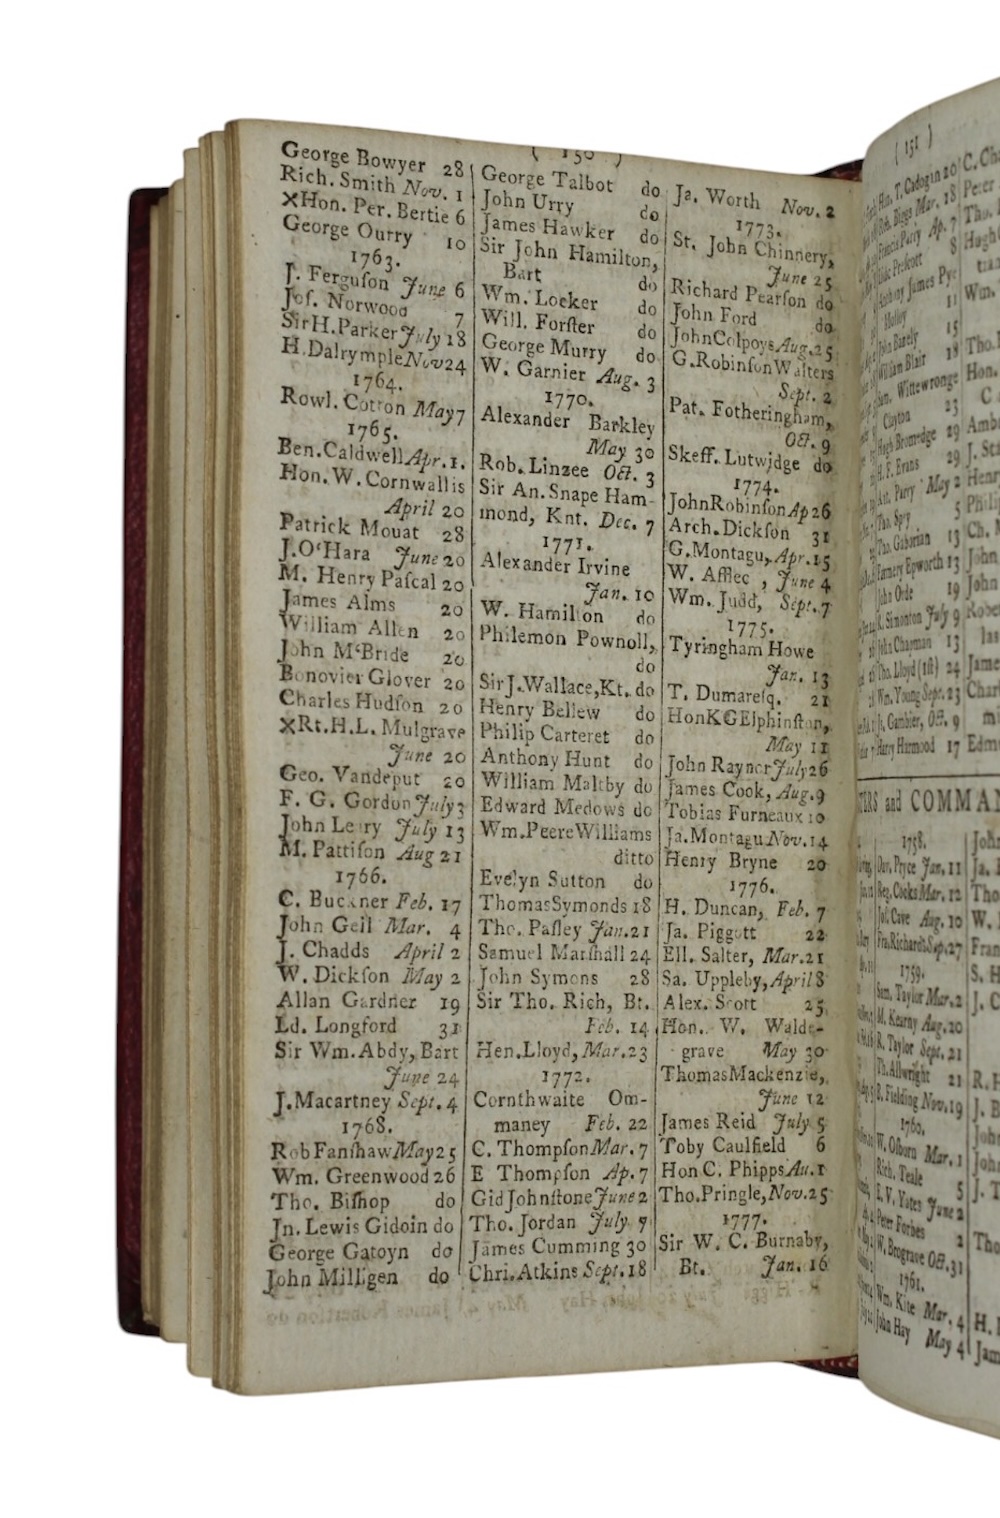 ( 150 )
George Bowyer 28
Rich. Smith Nov. 1
×Hon. Per. Bertie 6
George Ourry 10
1763.
J. Ferguſon June 6
Joſ. Norwood 7
Sir H. Parker July 18
H. Dalrymple Nov 24
1764.
Rowl. Cotton May 7
1765.
Ben. Caldwell Apr. 1.
Hon. W. Cornwallis
April 20
Patrick Mouat 28
J. O‘Hara June 20
M. Henry Paſcal 20
James Alms 20
William Allen 20
John M‘Bride 20
Bonovier Glover 20
Charles Hudſon 20
×Rt. H. L. Mulgrave
June 20
Geo. Vandeput 20
F. G. Gordon July 3
John Leiry July 13
M. Pattiſon Aug 21
1766.
C. Buckner Feb. 17
John Gell Mar. 4
J. Chadds April 2
W. Dickſon May 2
Allan Gardner 19
Ld. Longford 31
Sir Wm. Abdy, Bart
June 24
J. Macartney Sept. 4
1768.
Rob Fanſhaw May 25
Wm. Greenwood 26
Tho. Biſhop do
Jn. Lewis Gidoin do
George Gatoyn do
John Milligen do
George Talbot do
John Urry do
James Hawker do
Sir John Hamilton,
Bart do
Wm. Locker do
Will. Forſter do
George Murry do
W. Garnier Aug. 3
1770.
Alexander Barkley
May 30
Rob. Linzee Oct. 3
Sir An. Snape Ham-
mond, Knt. Dec. 7
1771.
Alexander Irvine
Jan. 10
W. Hamilton do
Philemon Pownoll,
do
Sir J. Wallace, Kt. do
Henry Bellew do
Philip Carteret do
Anthony Hunt do
William Maltby do
Edward Medows do
Wm. Peere Williams
ditto
Evelyn Sutton do
Thomas Symonds 18
Tho. Paſley Jan. 21
Samuel Marſhall 24
John Symons 28
Sir Tho. Rich, Bt.
Feb. 14
Hen. Lloyd, Mar. 23
1772.
Cornthwaite Om-
maney Feb. 22
C. Thompſon Mar. 7
E Thompſon Ap. 7
Gid Johnſtone June 2
Tho. Jordan July 7
James Cumming 30
Chri. Atkins Sept. 18
Ja. Worth Nov. 2
1773.
St. John Chinnery,
June 25
Richard Pearſon do
John Ford do
John Colpoys Aug. 25
G. Robinſon Walters
Sept. 2
Pat. Fotheringham,
Oct. 9
Skeff. Lutwidge do
1774.
John Robinſon Ap 26
Arch. Dickſon 31
G. Montagu, Apr. 15
W. Afflec , June 4
Wm. Judd, Sept. 7
1775.
Tyringham Howe
Jan. 13
T. Dumareſq. 21
Hon KGElphinſton,
May 11
John Raynor July 26
James Cook, Aug. 9
Tobias Furneaux 10
Ja. Montagu Nov. 14
Henry Bryne 20
1776.
H. Duncan, Feb. 7
Ja. Piggott 22
Ell. Salter, Mar. 21
Sa. Uppleby, April 8
Alex. Scott 25
Hon. W. Walde-
grave May 30
Thomas Mackenzie,
June 12
James Reid July 5
Toby Caulfield 6
Hon C. Phipps Au. 1
Tho. Pringle, Nov. 25
1777.
Sir W. C. Burnaby,
Bt. Jan. 16
( 151 )
Hon. T. Cadogan 20
Biggs Mar. 18
Francis Parry Ap. 7
Iſaac Preſcott 8
Anthony James Pye
Molloy 11
John Barely 15
William Blair 18
Wittewronge
Clayton 23
Hugh Bromedge 29
H. F. Evans 29
Parry May 2
Tho. Spry 5
Tho. Gaborian 13
Farmery Epworth 13
John Orde 19
R. Simonton July 9
John Chapman 13
Tho. Lloyd (1ſt) 24
Wm. Young Sept. 23
Ja. Gambier, Oct. 9
Harry Harmood 17
and COMMA
1758.
Dav. Pryce Jan. 11
Reg. Cocks Mar. 12
Joſ. Cave Aug. 10
Fra. Richards Sep. 27
1759.
Sam. Taylor Mar. 2
M. Kearny Aug. 20
R. Taylor Sept. 21
Th. Allwright 21
B. Fielding Nov. 19
1760.
W. Oſborn Mar. 1
Rich. Teale 5
E. V. Yates June 2
Peter Forbes 2
W. Brograve Oct. 31
1761.
Wm. Kite Mar. 4
John Hay May 4